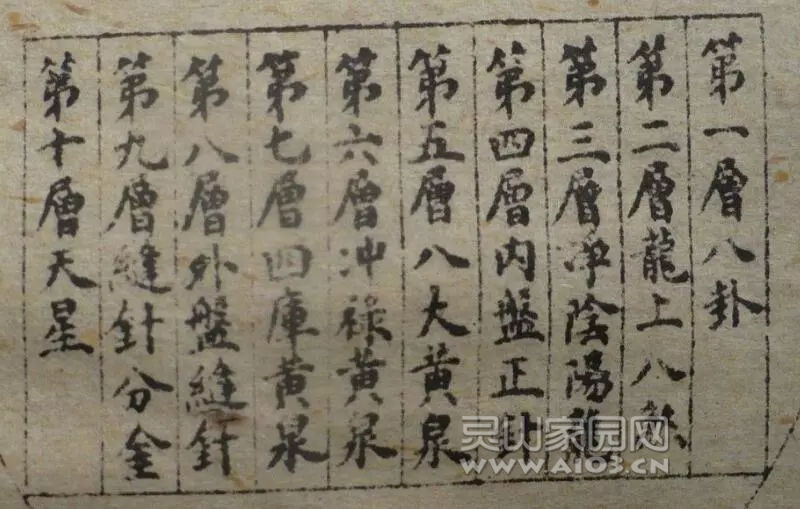 第一層八卦
第二層龍上八煞
第三層凈陰陽龍
第四層内盤正針
第五層八大黃泉
第六層冲祿黃泉
第七層四庫黃泉
第八層外盤縫針
第九層縫針分金
第十層天星
灵山家园网
www.A103.CN